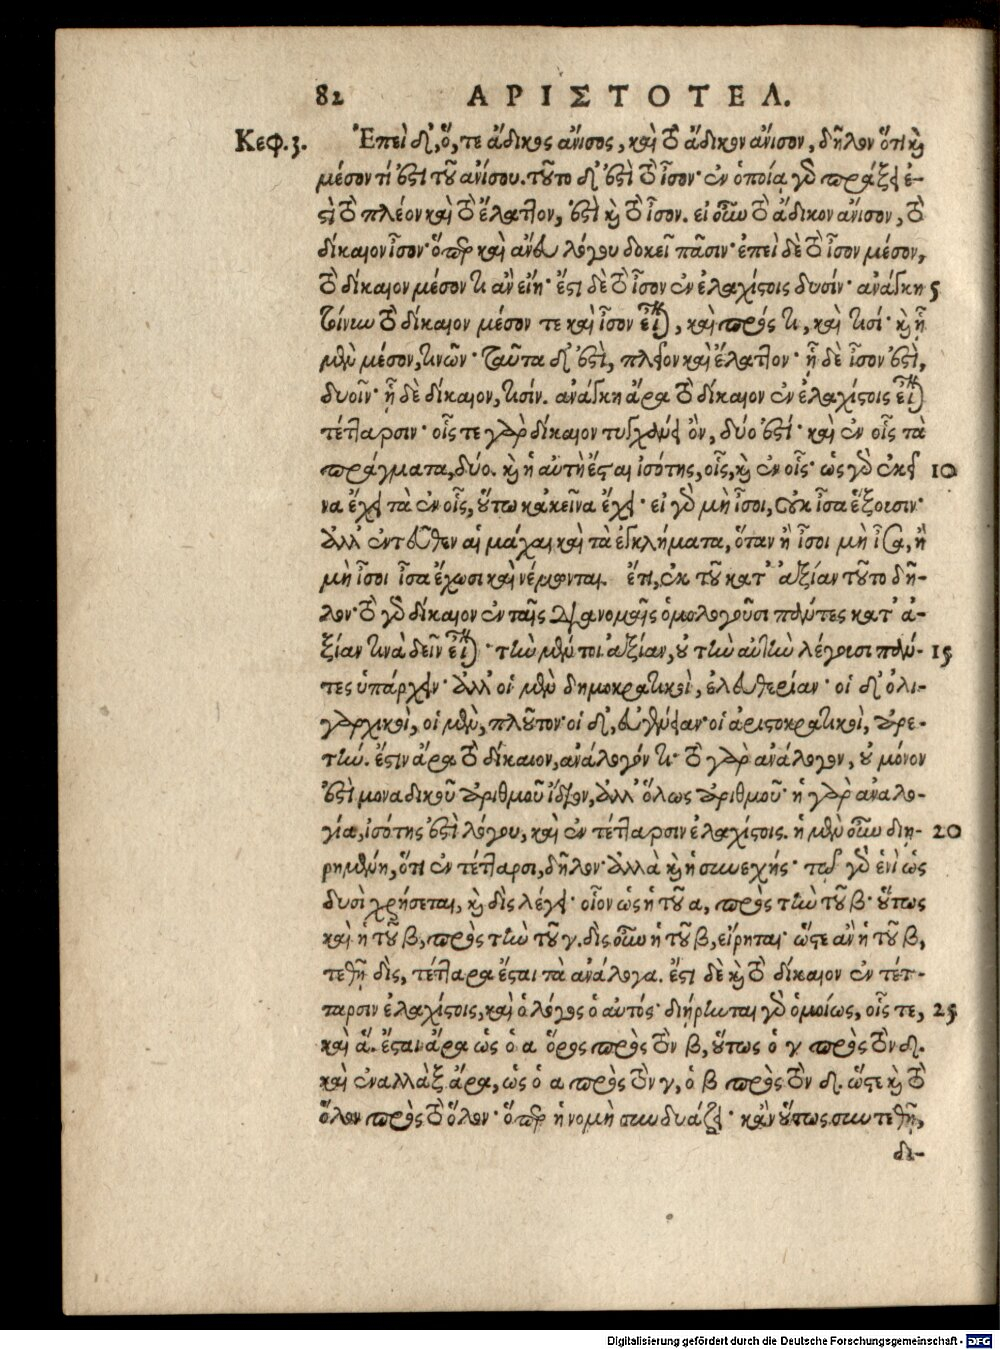 82 ΑΡΙΣΤΟΤΕΛ.
Κεφ.3. Ἐπεὶ δ', ὅ, τε ἄδικος ἄνισος, καὶ τὸ ἄδικον ἄνισον, δῆλον ὅτι καὶ
μέσον τί ἐστι τοῦ ἀνίσου. τοῦτο δ' ἐστὶ τὸ ἴσον· ἐν ὁποίᾳ γὰρ πράξει ἐ-
στὶ τὸ πλέον καὶ τὸ ἔλαττον, ἐστὶ καὶ τὸ ἴσον. εἰ οὖν τὸ ἄδικον ἄνισον, τὸ
δίκαιον ἴσον· ὅπερ καὶ ἄνευ λόγου δοκεῖ πᾶσιν· ἐπεὶ δὲ τὸ ἴσον μέσον,
τὸ δίκαιον μέσον τι ἂν εἴη· ἔστι δὲ τὸ ἴσον ἐν ἐλαχίστοις δυσίν· ἀνάγκη 5
τοίνυν τὸ δίκαιον μέσον τε καὶ ἴσον εἶναι, καὶ πρός τι, καὶ τισί· καὶ ᾗ
μὲν μέσον, τινῶν· ταῦτα δ' ἐστὶ, πλεῖον καὶ ἔλαττον· ᾗ δὲ ἴσον ἐστὶ,
δυοῖν· ᾗ δὲ δίκαιον, τισίν. ἀνάγκη ἄρα τὸ δίκαιον ἐν ἐλαχίστοις εἶναι
τέτταρσιν· οἷς τε γὰρ δίκαιον τυγχάνει ὂν, δύο ἐστί· καὶ ἐν οἷς τὰ
πράγματα, δύο. καὶ ἡ αὐτὴ ἔσται ἰσότης, οἷς, καὶ ἐν οἷς· ὡς γὰρ ἐκεῖ 10
να ἔχει τὰ ἐν οἷς, οὕτω κἀκεῖνα ἔχει· εἰ γὰρ μὴ ἴσοι, οὐκ ἴσα ἕξουσιν·
ἀλλ' ἐντεῦθεν αἱ μάχαι καὶ τὰ ἐγκλήματα, ὅταν ἢ ἴσοι μὴ ἴσα, ἢ
μὴ ἴσοι ἴσα ἔχωσι καὶ νέμωνται. ἔτι, ἐκ τοῦ κατ' ἀξίαν τοῦτο δῆ-
λον· τὸ γὰρ δίκαιον ἐν ταῖς διανομαῖς ὁμολογοῦσι πάντες κατ' ἀ-
ξίαν τινὰ δεῖν εἶναι· τὴν μέντοι ἀξίαν, οὐ τὴν αὐτὴν λέγουσι πάν- 15
τες ὑπάρχειν· ἀλλ' οἱ μὲν δημοκρατικοὶ, ἐλευθερίαν· οἱ δ' ὀλι-
γαρχικοὶ, οἱ μὲν, πλοῦτον· οἱ δ', εὐγένειαν· οἱ ἀριστοκρατικοὶ, ἀρε-
τήν. ἔστιν ἄρα τὸ δίκαιον, ἀνάλογόν τι· τὸ γὰρ ἀνάλογον, οὐ μόνον
ἐστὶ μοναδικοῦ ἀριθμοῦ ἴδιον, ἀλλ' ὅλως ἀριθμοῦ· ἡ γὰρ ἀναλο-
γία, ἰσότης ἐστὶ λόγου, καὶ ἐν τέτταρσιν ἐλαχίστοις. ἡ μὲν οὖν διῃ- 20
ρημένη, ὅτι ἐν τέτταρσι, δῆλον· ἀλλὰ καὶ ἡ συνεχής· τῷ γὰρ ἑνὶ ὡς
δυσὶ χρήσεται, καὶ δὶς λέγει· οἷον ὡς ἡ τοῦ α, πρὸς τὴν τοῦ β· οὕτως
καὶ ἡ τοῦ β, πρὸς τὴν τοῦ γ. δὶς οὖν ἡ τοῦ β, εἴρηται· ὥστε ἂν ἡ τοῦ β,
τεθῇ δὶς, τέτταρα ἔσται τὰ ἀνάλογα. ἔστι δὲ καὶ τὸ δίκαιον ἐν τέτ-
ταρσιν ἐλαχίστοις, καὶ ὁ λόγος ὁ αὐτός· διῄρηται γὰρ ὁμοίως, οἷς τε, 25
καὶ ἅ. ἔσται ἄρα ὡς ὁ α ὅρος πρὸς τὸν β, οὕτως ὁ γ πρὸς τὸν δ.
καὶ ἐναλλὰξ ἄρα, ὡς ὁ α πρὸς τὸν γ, ὁ β πρὸς τὸν δ. ὥστε καὶ τὸ
ὅλον πρὸς τὸ ὅλον· ὅπερ ἡ νομὴ συνδυάζει· κἂν οὕτως συντεθῇ,
δι-
Digitalisierung gefördert durch die Deutsche Forschungsgemeinschaft - DFG